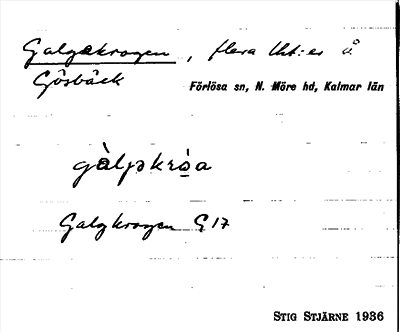 Galgekrogen, flera lht:er å
Gösbäck
Förlösa sn, N. Möre hd, Kalmar län
gàljəkrọa
Galgkrogen G 17
STIG STJÄRNE 1936